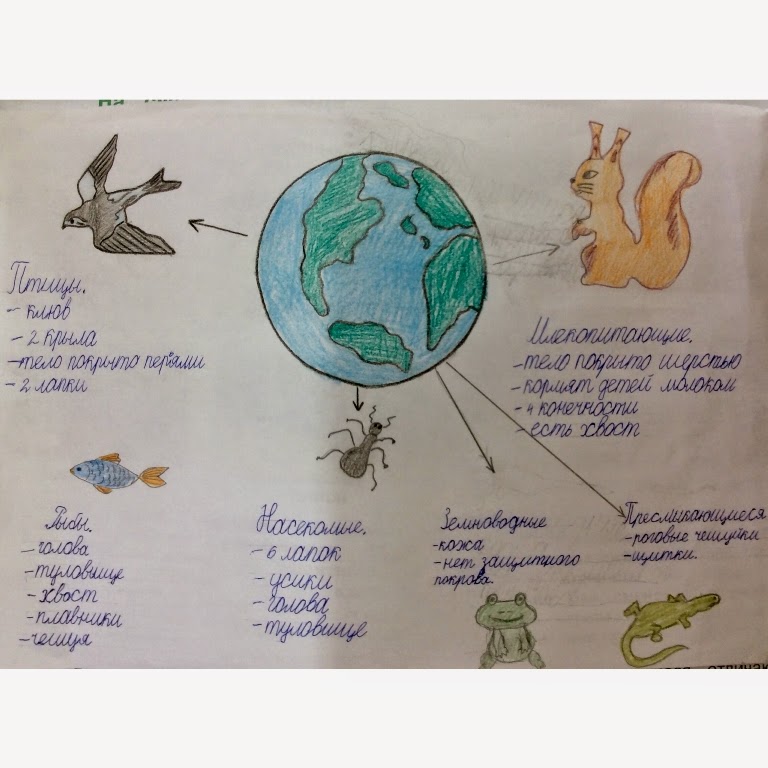 Птицы.
- клюв
- 2 крыла
- тело покрыто перьями
- 2 лапки
Млекопитающие.
- тело покрыто шерстью
- кормят детей молоком
- 4 конечности
- есть хвост
Рыбы.
- голова
- туловище
- хвост
- плавники
- чешуя
Насекомые.
- 6 лапок
- усики
- голова
- туловище
Земноводные
- кожа
- нет защитного
покрова.
Пресмыкающиеся
- роговые чешуйки
- щитки.